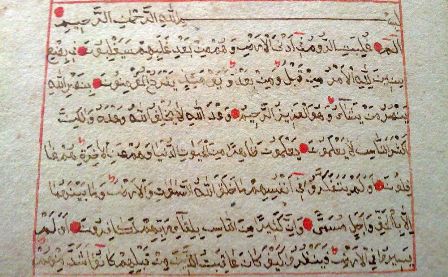 بسم الله الرحمن الرحيم
الم غلبت الروم في ادنى الارض وهم من بعد غلبهم سيغلبون في بضع
سنين لله الامر من قبل ومن بعد ويومئذ يفرح المؤمنون بنصر الله
ينصر من يشاء وهو العزيز الرحيم وعد الله لا يخلف الله وعده ولكن
اكثر الناس لا يعلمون يعلمون ظاهرا من الحيوة الدنيا وهم عن الاخرة هم غا
فلون اولم يتفكروا في انفسهم ما خلق الله السموات والارض وما بينهما
الا بالحق واجل مسمى وان كثيرا من الناس بلقاء ربهم لكافرون اولم
يسيروا في الارض فينظروا كيف كان عاقبة الذين من قبلهم كانوا اشد منهم